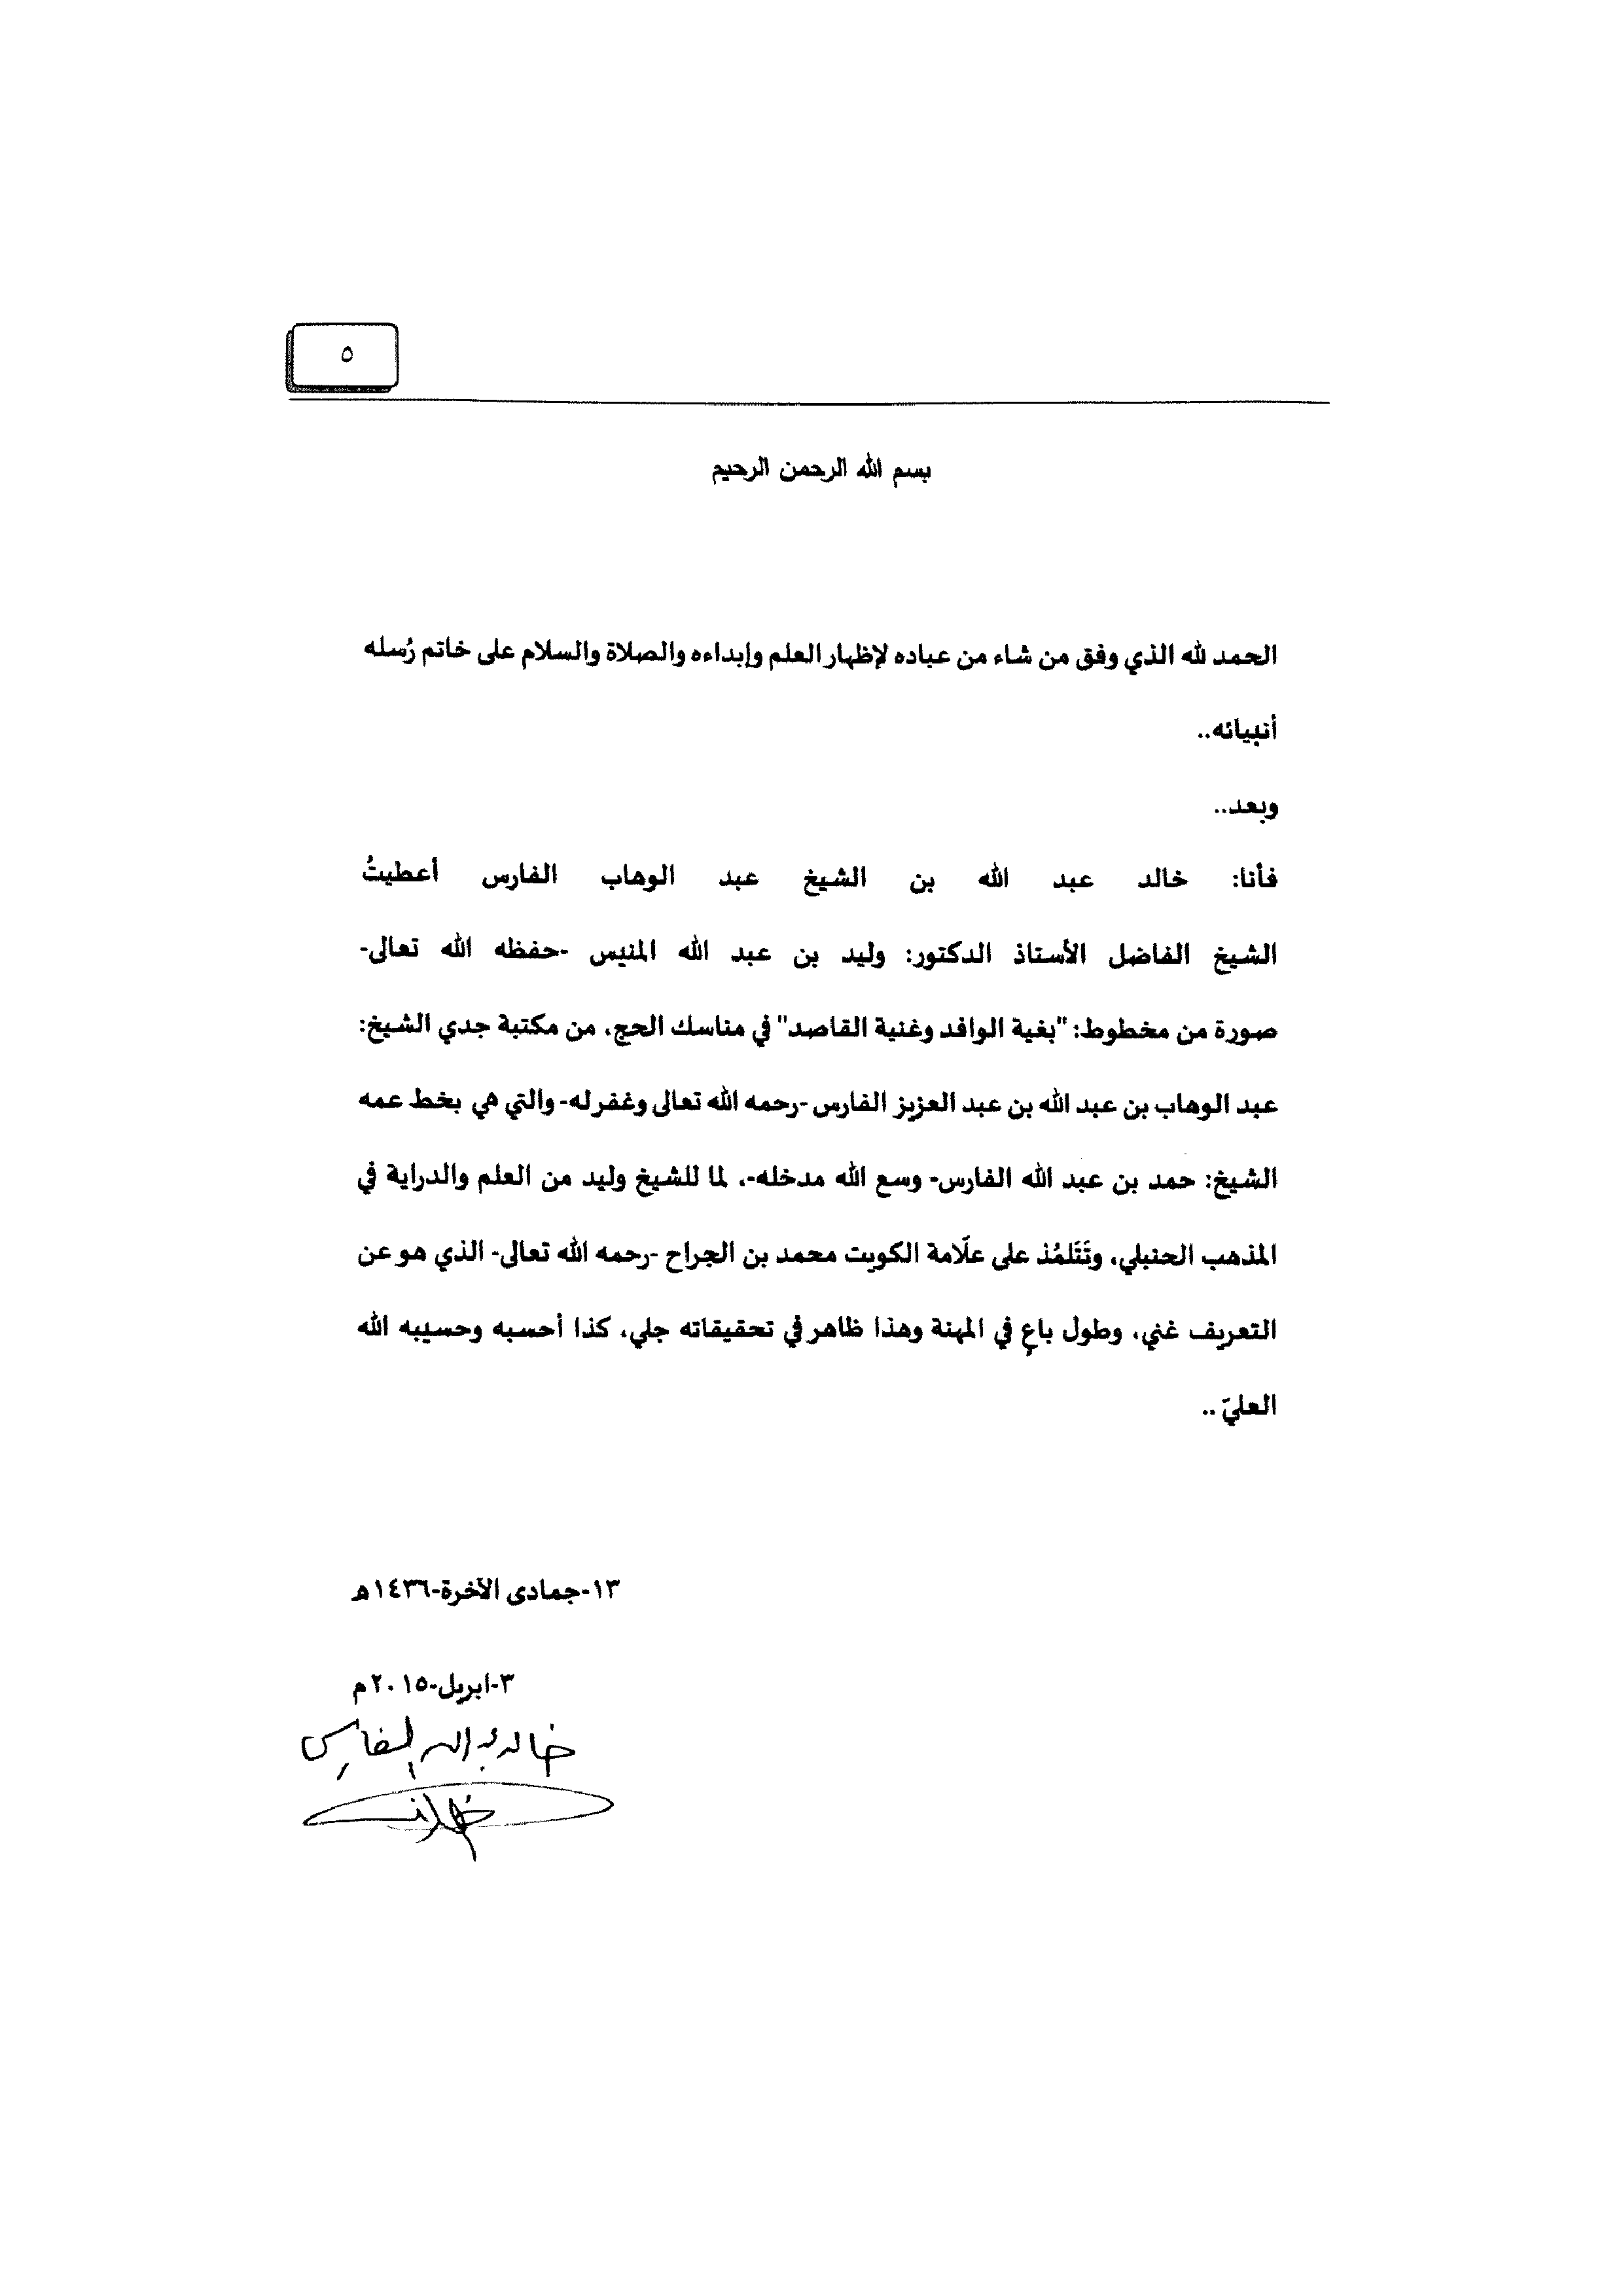 ٥
بسم الله الرحمن الرحيم
الحمد لله الذي وفق من شاء من عباده لإظهار العلم وإبداءه والصلاة والسلام على خاتم رُسله
أنبيائه..
وبعد..
فأنا: خالد عبد الله بن الشيخ عبد الوهاب الفارس أعطيتُ
الشيخ الفاضل الأستاذ الدكتور: وليد بن عبد الله المنيس -حفظه الله تعالى-
صورة من مخطوط: "بغية الوافد وغنية القاصد" في مناسك الحج، من مكتبة جدي الشيخ:
عبد الوهاب بن عبد الله بن عبد العزيز الفارس -رحمه الله تعالى وغفر له- والتي هي بخط عمه
الشيخ: حمد بن عبد الله الفارس- وسع الله مدخله-، لما للشيخ وليد من العلم والدراية في
المذهب الحنبلي، وتَتَلمُذ على علّامة الكويت محمد بن الجراح -رحمه الله تعالى- الذي هو عن
التعريف غني، وطول باعٍ في المهنة وهذا ظاهر في تحقيقاته جلي، كذا أحسبه وحسيبه الله
العليّ ..
١٣-جمادى الآخرة-١٤٣٦هـ
٣-ابريل-٢٠١٥م
خالد عبد الله الفارس